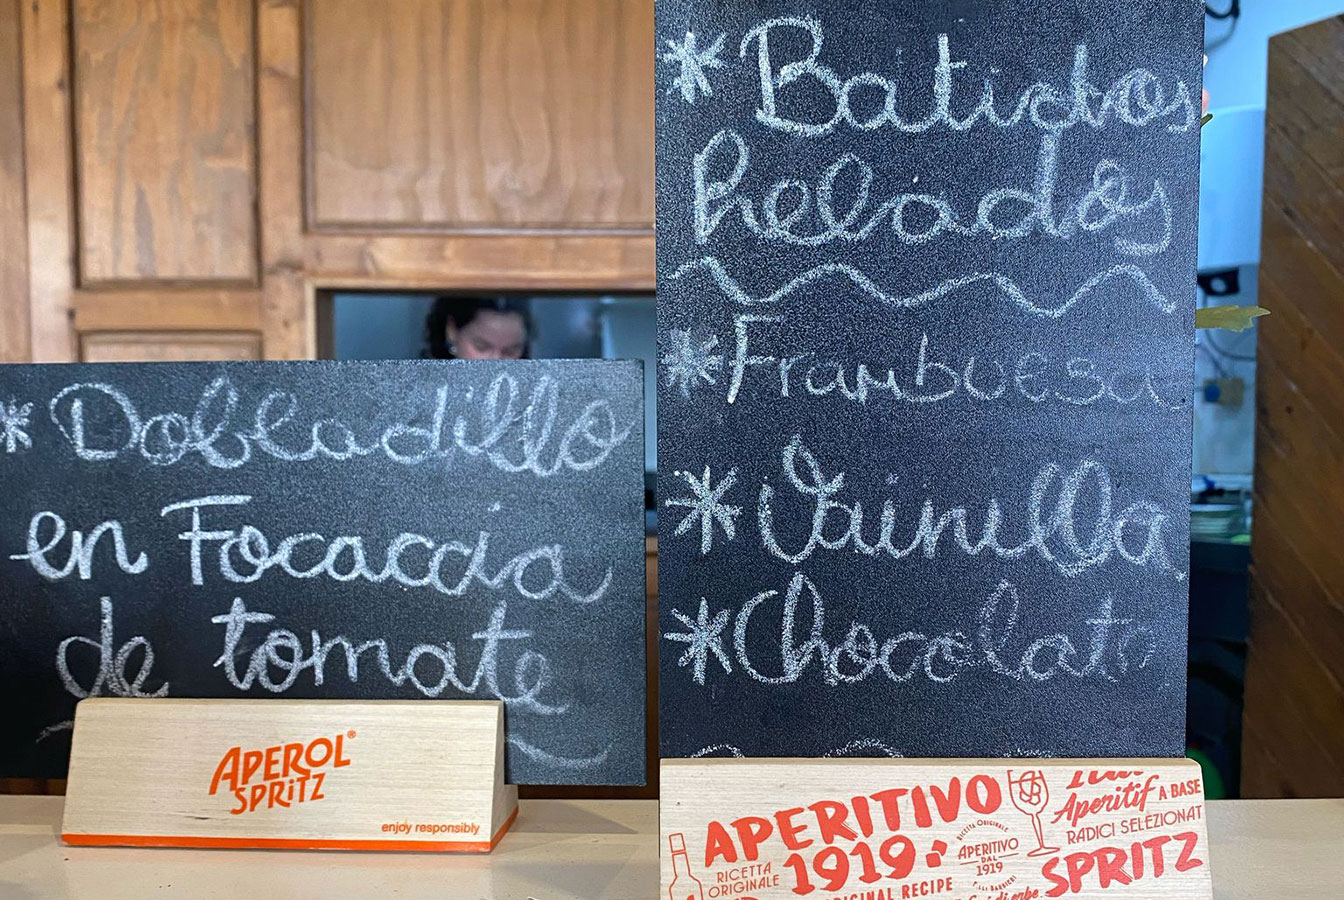 * Dobladillo
en Focaccia
de tomate
APEROL®
SPRiTZ
enjoy responsibly
* Batidos
helados
* Frambuesa
* Vainilla
* Chocolate
APERITIVO
1919
RICETTA
ORIGINALE
ORIGINAL RECIPE
RICETTA ORIGINALE
APERITIVO
DAL
1919
Aperitif A BASE
RADICI SELEZIONAT
SPRITZ